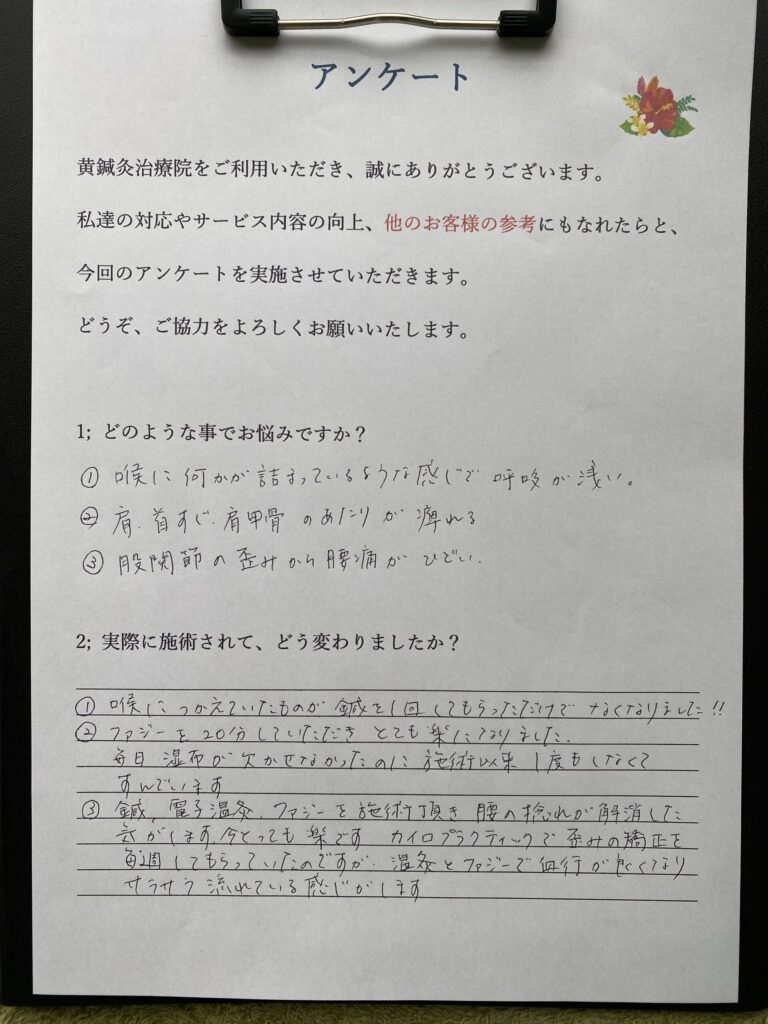 アンケート
黄鍼灸治療院をご利用いただき、誠にありがとうございます。
私達の対応やサービス内容の向上、他のお客様の参考にもなれたらと、
今回のアンケートを実施させていただきます。
どうぞ、ご協力をよろしくお願いいたします。
1; どのような事でお悩みですか？
① 喉に何かが詰まっているような感じで 呼吸が浅い。
② 肩、首すじ、肩甲骨 のあたりが 痺れる
③ 股関節の歪みから腰痛が ひどい.
2; 実際に施術されて、どう変わりましたか？
① 喉につかえていたものが 鍼を1回してもらっただけで なくなりました!!
② ファジーを20分していただき とても楽になりました.
毎日 湿布が欠かせなかったのに 施術以来 1度もしなくて
すんでいます
③ 鍼、電子温灸、ファジーを施術頂き 腰の捻れが解消した
気がします.今とっても楽です カイロプラクティックで 歪みの矯正を
毎週してもらっていたのですが、温灸とファジーで血行が良くなり
サラサラ流れている感じがします